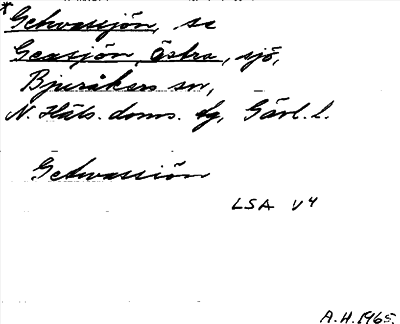 *Getwassjön, se
Geasjön, Östra, sjö,
Bjuråkers sn,
N. Häls. doms. tg, Gävl. l.
Getwassiön
LSA V4
A.H. 1965.